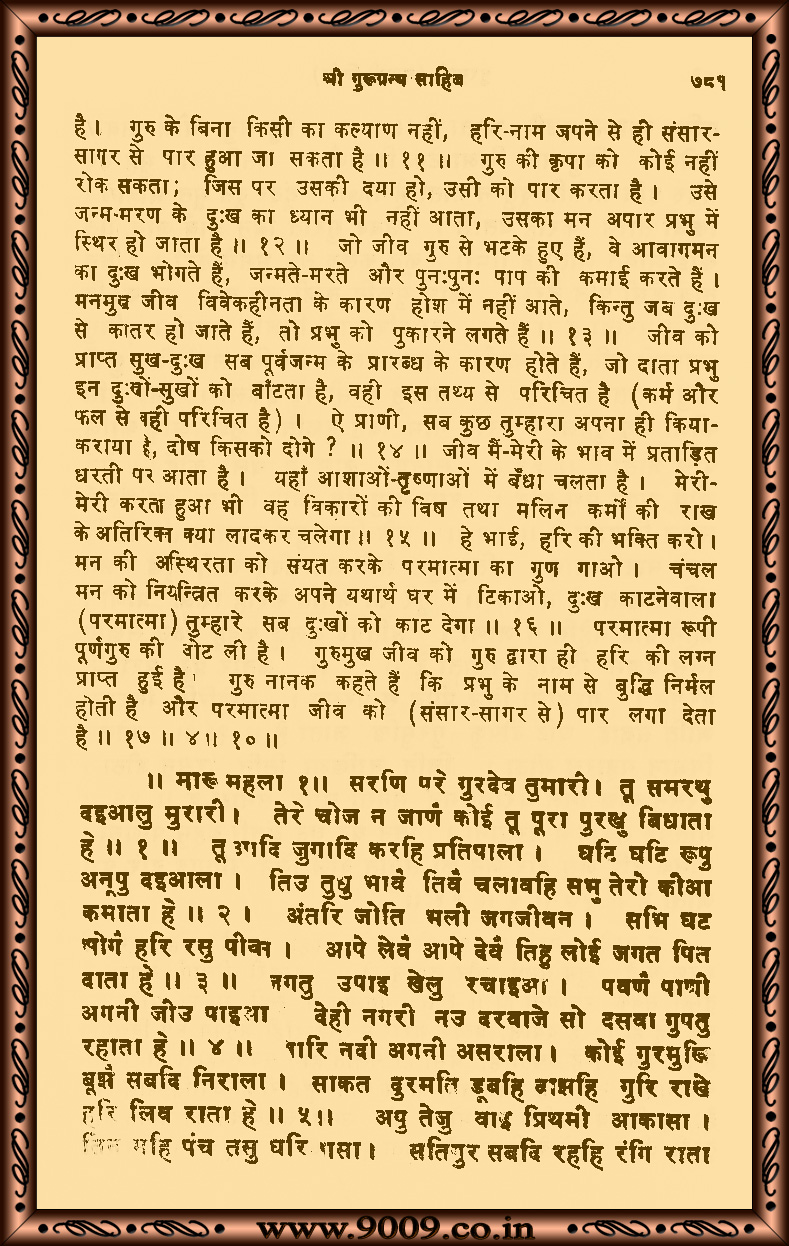 श्री गुरुग्रन्थ साहिब ७८१
है। गुरु के बिना किसी का कल्याण नहीं, हरि-नाम जपने से ही संसार-
सागर से पार हुआ जा सकता है ॥ ११ ॥ गुरु की कृपा को कोई नहीं
रोक सकता; जिस पर उसकी दया हो, उसी को पार करता है। उसे
जन्म-मरण के दुःख का ध्यान भी नहीं आता, उसका मन अपार प्रभु में
स्थिर हो जाता है ॥ १२ ॥ जो जीव गुरु से भटके हुए हैं, वे आवागमन
का दुःख भोगते हैं, जन्मते-मरते और पुनःपुनः पाप की कमाई करते हैं।
मनमुख जीव विवेकहीनता के कारण होश में नहीं आते, किन्तु जब दुःख
से कातर हो जाते हैं, तो प्रभु को पुकारने लगते हैं ॥ १३ ॥ जीव को
प्राप्त सुख-दुःख सब पूर्वजन्म के प्रारब्ध के कारण होते हैं, जो दाता प्रभु
इन दुःखों-सुखों को बाँटता है, वही इस तथ्य से परिचित है (कर्म और
फल से वही परिचित है)। ऐ प्राणी, सब कुछ तुम्हारा अपना ही किया-
कराया है, दोष किसको दोगे ? ॥ १४ ॥ जीव मैं-मेरी के भाव में प्रताड़ित
धरती पर आता है। यहाँ आशाओं-तृष्णाओं में बँधा चलता है। मेरी-
मेरी करता हुआ भी वह विकारों की विष तथा मलिन कर्मों की राख
के अतिरिक्त क्या लादकर चलेगा ॥ १५ ॥ हे भाई, हरि की भक्ति करो।
मन की अस्थिरता को संयत करके परमात्मा का गुण गाओ। चंचल
मन को नियन्त्रित करके अपने यथार्थ घर में टिकाओ, दुःख काटनेवाला
(परमात्मा) तुम्हारे सब दुःखों को काट देगा ॥ १६ ॥ परमात्मा रूपी
पूर्णगुरु की ओट ली है। गुरुमुख जीव को गुरु द्वारा ही हरि की लग्न
प्राप्त हुई है। गुरु नानक कहते हैं कि प्रभु के नाम से बुद्धि निर्मल
होती है और परमात्मा जीव को (संसार-सागर से) पार लगा देता
है ॥ १७ ॥ ४ ॥ १० ॥
॥ मारू महला १ ॥ सरणि परे गुरदेव तुमारी। तू समरथु
दइआलु मुरारी। तेरे चोज न जाणै कोई तू पूरा पुरखु बिधाता
हे ॥ १ ॥ तू आदि जुगादि करहि प्रतिपाला। घटि घटि रूपु
अनूपु दइआला। जिउ तुधु भावै तिवै चलावहि सभु तेरो कीआ
कमाता हे ॥ २ । अंतरि जोति भली जगजीवन। सभि घट
भोगै हरि रसु पीवन। आपे लेवै आपे देवै तिहु लोई जगत पित
दाता हे ॥ ३ ॥ जगतु उपाइ खेलु रचाइआ। पवणै पाणी
अगनी जीउ पाइआ देही नगरी नउ दरवाजे सो दसवा गुपतु
रहाता हे ॥ ४ ॥ चारि नदी अगनी असराला। कोई गुरमुखि
बूझै सबदि निराला। साकत दुरमति डूबहि दाझहि गुरि राखे
हरि लिव राता हे ॥ ५ ॥ अपु तेजु वाइ प्रिथमी आकासा।
तिन महि पंच ततु घरि वासा। सतिगुर सबदि रहहि रंगि राता
www.9009.co.in